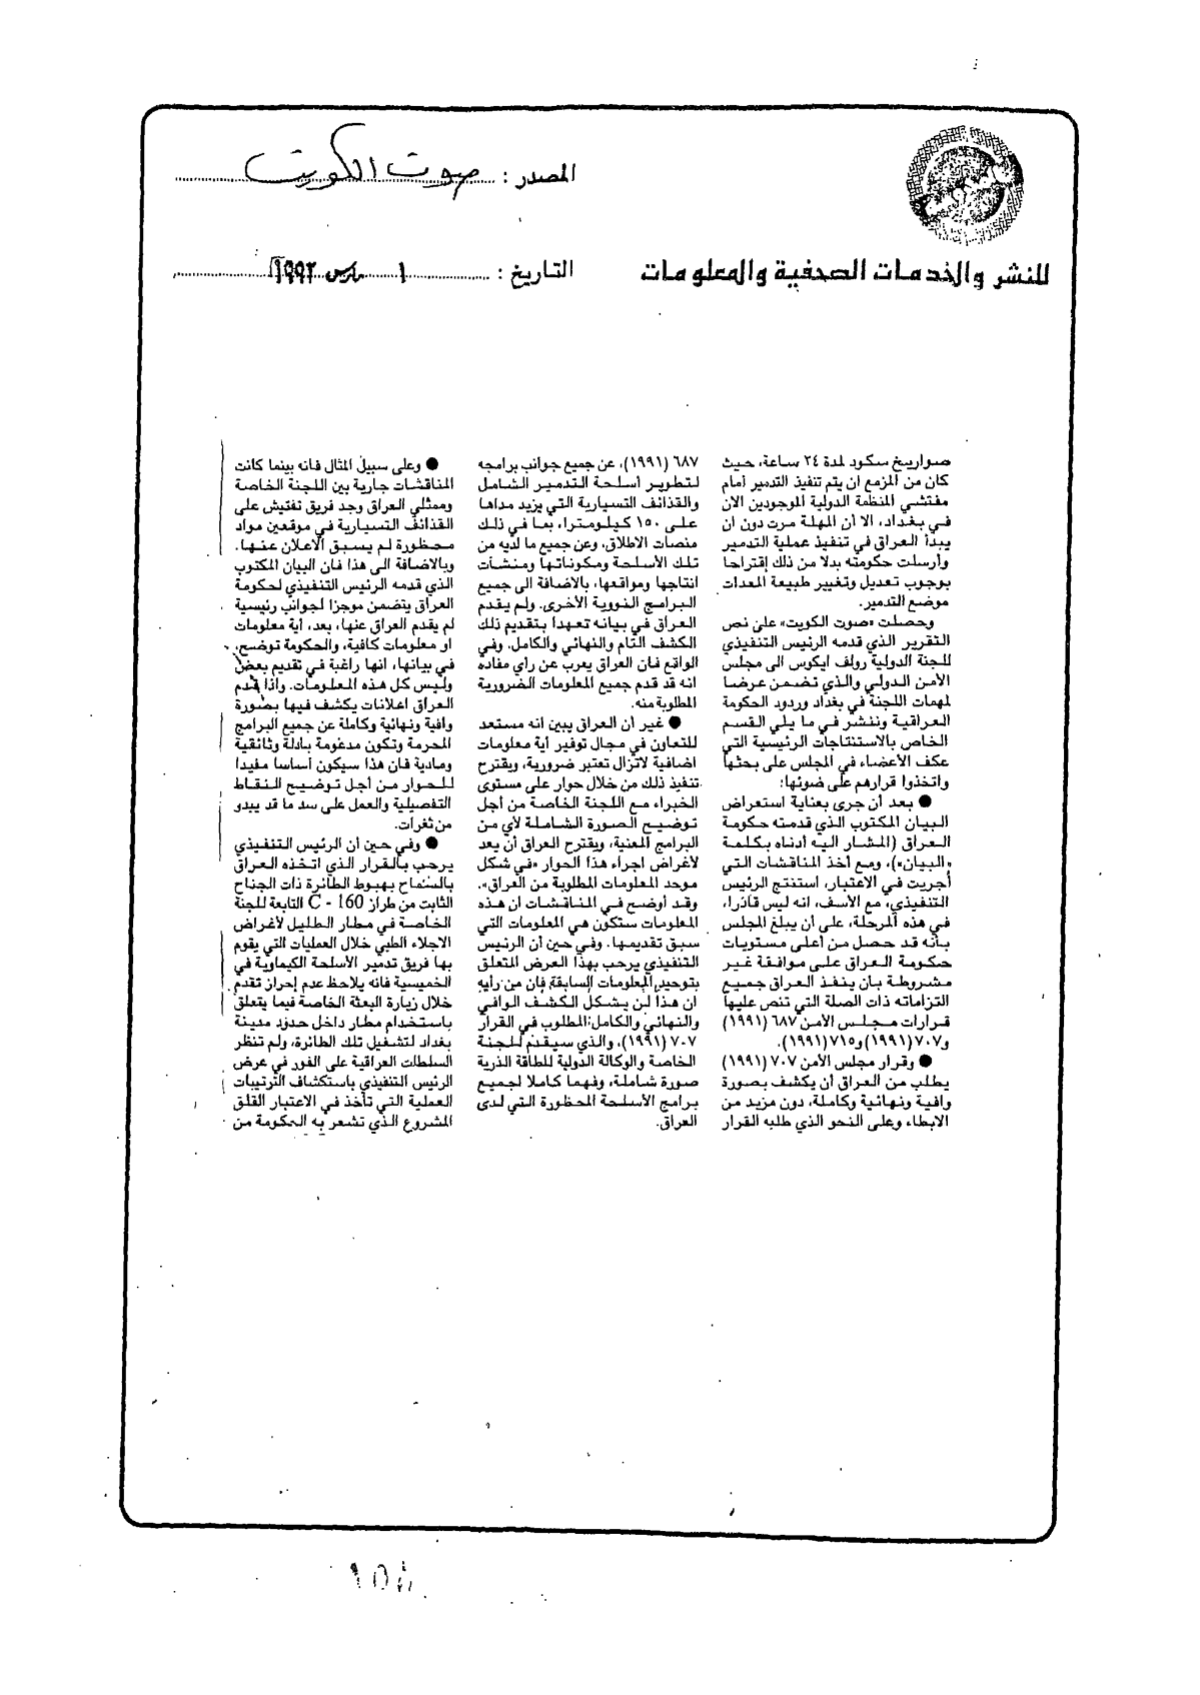 المصدر : صوت الكويت
للنشر والخدمات الصحفية والمعلومات
التاريخ : ١ مارس ١٩٩٢
صواريخ سكود لمدة ٢٤ ساعة، حيث
كان من المزمع ان يتم تنفيذ التدمير أمام
مفتشي المنظمة الدولية الموجودين الآن
في بغداد، الا أن المهلة مرت دون ان
يبدأ العراق في تنفيذ عملية التدمير
وأرسلت حكومته بدلا من ذلك إقتراحا
بوجوب تعديل وتغيير طبيعة المعدات
موضع التدمير.
وحصلت «صوت الكويت» على نص
التقرير الذي قدمه الرئيس التنفيذي
للجنة الدولية رولف ايكوس الى مجلس
الأمن الدولي والذي تضمن عرضا
لمهمات اللجنة في بغداد وردود الحكومة
العراقية وننشر في ما يلي القسم
الخاص بالاستنتاجات الرئيسية التي
عكف الأعضاء في المجلس على بحثها
واتخذوا قرارهم على ضوئها:
● بعد أن جرى بعناية استعراض
البيان المكتوب الذي قدمته حكومة
العراق (المشار اليه أدناه بكلمة
«البيان»)، ومع أخذ المناقشات التي
أجريت في الاعتبار، استنتج الرئيس
التنفيذي، مع الأسف، انه ليس قادرا،
في هذه المرحلة، على أن يبلغ المجلس
بأنه قد حصل من أعلى مستويات
حكومة العراق على موافقة غير
مشروطة بان ينفذ العراق جميع
التزاماته ذات الصلة التي تنص عليها
قرارات مجلس الأمن ٦٨٧ (١٩٩١)
و٧٠٧ (١٩٩١) و٧١٥ (١٩٩١).
● وقرار مجلس الأمن ٧٠٧ (١٩٩١)
يطلب من العراق أن يكشف بصورة
وافية ونهائية وكاملة، دون مزيد من
الابطاء وعلى النحو الذي طلبه القرار
٦٨٧ (١٩٩١)، عن جميع جوانب برامجه
لتطوير أسلحة التدمير الشامل
والقذائف التسيارية التي يزيد مداها
على ١٥٠ كيلومترا، بما في ذلك
منصات الاطلاق، وعن جميع ما لديه من
تلك الأسلحة ومكوناتها ومنشآت
انتاجها ومواقعها، بالاضافة الى جميع
البرامج النووية الأخرى. ولم يقدم
العراق في بيانه تعهدا بتقديم ذلك
الكشف التام والنهائي والكامل. وفي
الواقع فان العراق يعرب عن رأي مفاده
انه قد قدم جميع المعلومات الضرورية
المطلوبة منه.
● غير أن العراق يبين انه مستعد
للتعاون في مجال توفير أية معلومات
اضافية لاتزال تعتبر ضرورية، ويقترح
تنفيذ ذلك من خلال حوار على مستوى
الخبراء مع اللجنة الخاصة من أجل
توضيح الصورة الشاملة لأي من
البرامج المعنية، ويقترح العراق أن يعد
لأغراض اجراء هذا الحوار «في شكل
موحد المعلومات المطلوبة من العراق».
وقد أوضح في المناقشات ان هذه
المعلومات ستكون هي المعلومات التي
سبق تقديمها. وفي حين أن الرئيس
التنفيذي يرحب بهذا العرض المتعلق
بتوحيد المعلومات السابقة فإن من رأيه
ان هذا لن يشكل الكشف الوافي
والنهائي والكامل المطلوب في القرار
٧٠٧ (١٩٩١)، والذي سيقدم للجنة
الخاصة والوكالة الدولية للطاقة الذرية
صورة شاملة، وفهما كاملا لجميع
برامج الأسلحة المحظورة التي لدى
العراق.
● وعلى سبيل المثال فانه بينما كانت
المناقشات جارية بين اللجنة الخاصة
وممثلي العراق وجد فريق تفتيش على
القذائف التسيارية في موقعين مواد
محظورة لم يسبق الاعلان عنها.
وبالاضافة الى هذا فان البيان المكتوب
الذي قدمه الرئيس التنفيذي لحكومة
العراق يتضمن موجزا لجوانب رئيسية
لم يقدم العراق عنها، بعد، أية معلومات
او معلومات كافية، والحكومة توضح،
في بيانها، انها راغبة في تقديم بعض
وليس كل هذه المعلومات. واذا قدم
العراق اعلانات يكشف فيها بصورة
وافية ونهائية وكاملة عن جميع البرامج
المحرمة وتكون مدعومة بأدلة وثائقية
ومادية فان هذا سيكون أساسا مفيدا
للحوار من أجل توضيح النقاط
التفصيلية والعمل على سد ما قد يبدو
من ثغرات.
● وفي حين أن الرئيس التنفيذي
يرحب بالقرار الذي اتخذه العراق
بالسماح بهبوط الطائرة ذات الجناح
الثابت من طراز C - 160 التابعة للجنة
الخاصة في مطار الطليل لأغراض
الاجلاء الطبي خلال العمليات التي يقوم
بها فريق تدمير الأسلحة الكيماوية في
الخميسية فانه يلاحظ عدم إحراز تقدم
خلال زيارة البعثة الخاصة فيما يتعلق
باستخدام مطار داخل حدود مدينة
بغداد لتشغيل تلك الطائرة، ولم تنظر
السلطات العراقية على الفور في عرض
الرئيس التنفيذي باستكشاف الترتيبات
العملية التي تأخذ في الاعتبار القلق
المشروع الذي تشعر به الحكومة من